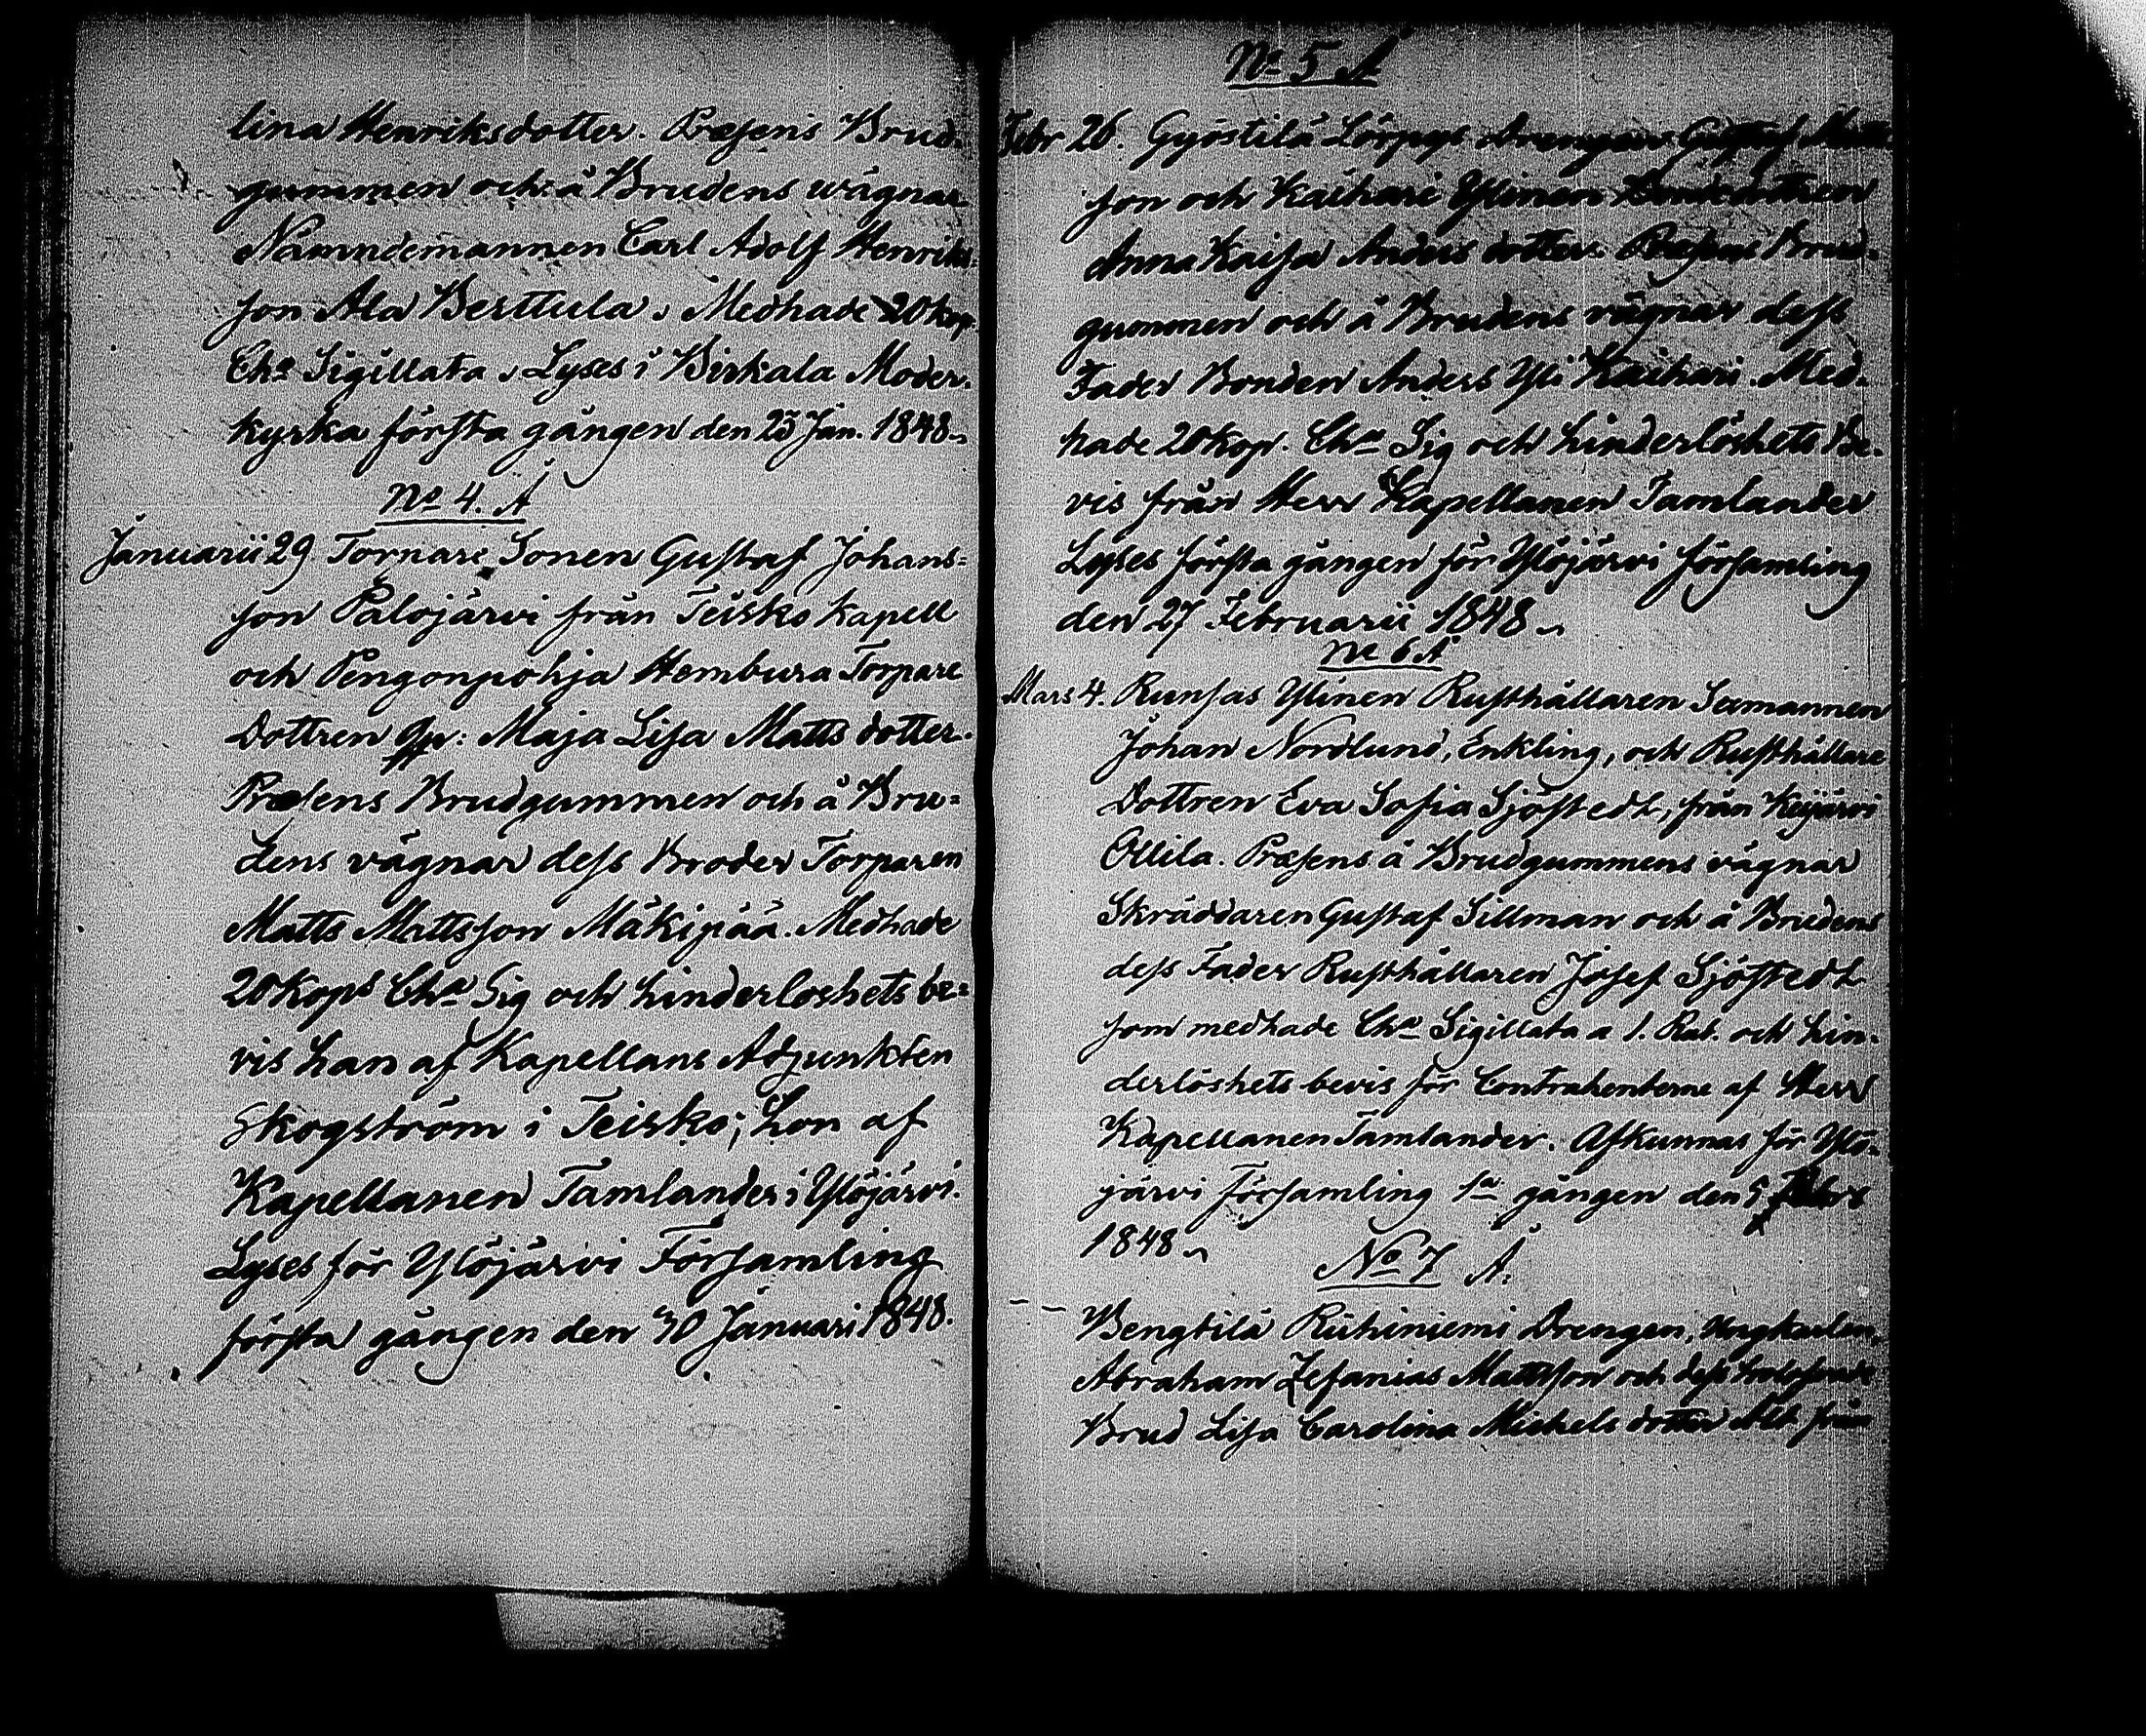 lina Henriksdotter. Præsens Brud-
gummen och å Brudens wägnar
Nämndemannen Carl Adolf Henriks
son Ala Berttula. Medhade 20 kop.
Cha Sigillata. Lyses i Birkala Moder-
kyrka första gången den 23 Jan. 1848.
No 4. Å
Januarii 29 Torpare Sonen Gustaf Johans=
son Palojärvi från Teisko kapell
och Pengonpohja Hembura Torpare
Dottren Maja Lisa Matts dotter.
Præsens Brudgummen och å Bru=
dens vägnar dess Broder Torparen
Matts Mattsson Mäkipää. Medhade
20 kops Cha Sig och hinderloshets be=
vis han af Kapellans Adjunkten
Skogström i Teisko; hon af
Kapellanen Tamlander i Ylöjärvi.
Lyses för Ylöjärvi Församling
första gången den 30 Januari 1848.
No 5 Å
Febr 26. Gyöstilä Drengen Gustaf Matts
son och Kaihari Ylinen
Anna Kaisa Anders dotter. Præsens Brud-
gummen och å Brudens vägnar dess
Fader Bonden Anders Yli Kaihari. Med-
hade 20 kop. Cha Sig och hinderlöshets be-
vis från Herr Kapellanen Tamlander
Lyses första gången för Ylöjärvi församling
den 27 Februarii 1848.
No 6 Å
Mars 4. Runsas Ylinen Rusthållaren Sexmannen
Johan Nordlund, Enkling, och Rusthållare
Dottren Eva Sofia Sjöstedt, från Keijärvi
Ollila. Præsens å Brudgummens vägnar
Skräddaren Gustaf Sillman och å Brudens
dess Fader Rusthållaren Josef Sjöstedt
som medhade Cha Sigillata a 1. Rub. och hin-
derlöshets bevis för Contrahenterne af Herr
Kapellanen Tamlander. Afkunnas för Ylö-
järvi Församling 1a gången den 5
1848.
No 7 Å.
- - Bengtilä Riihiniemi Drengen, Ungkarlen,
Abraham Zefanias Mattsson och dess
Brud Lisa Carolina Michels dotter från